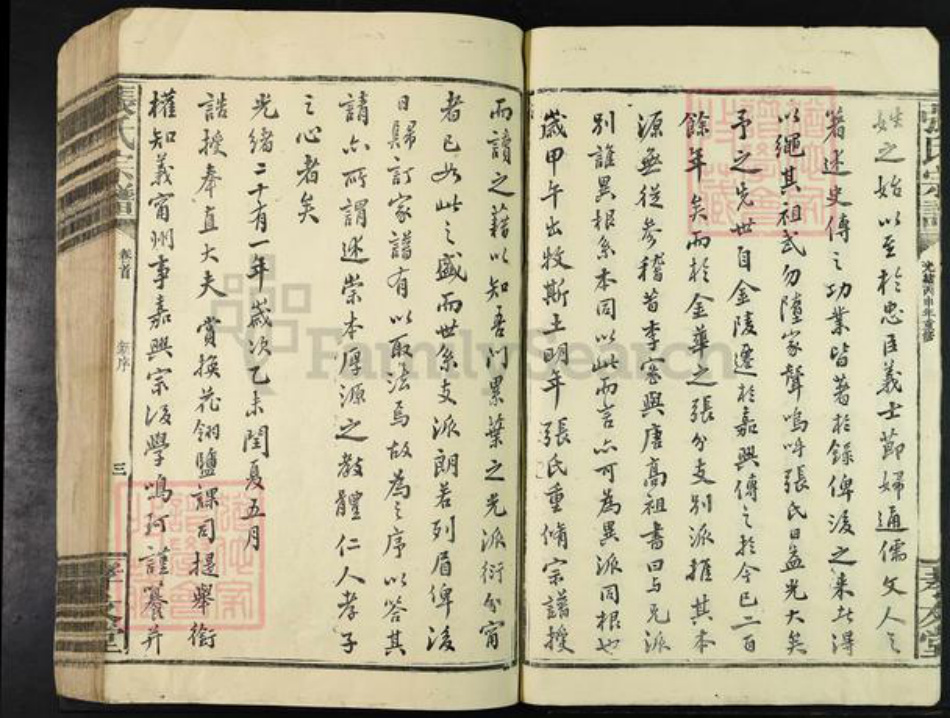 張氏宗譜
光緒丙申年重修
孝友堂
姓之始以至於忠臣義士節婦通儒文人之
著述史傳之功業皆著於錄俾後之來者得
以繩其祖武勿墮家聲嗚呼張氏日益光大矣
予之先世自金陵遷於嘉興傳之於今已二百
餘年矣而於金華之張分支別派推其本
源無從參稽昔李密與唐高祖書曰與兄派
別誰異根系本同以此而言亦可為異派同根也
歲甲午出牧斯土明年張氏重脩宗譜授
而讀之藉以知吾門累葉之光派衍分甯
者已如此之盛而世系支派朗若列眉俾後
日歸訂家譜有以取法焉故為之序以答其
請亦所謂述崇本厚源之教體仁人孝子
之心者矣
光緒二十有一年歲次乙未閏夏五月
誥授奉直大夫 賞換花翎鹽課司提舉銜
權知義甯州事嘉興宗後學鳴珂謹譔并
張氏宗譜
卷首
新序
三
孝友堂
FamilySearch